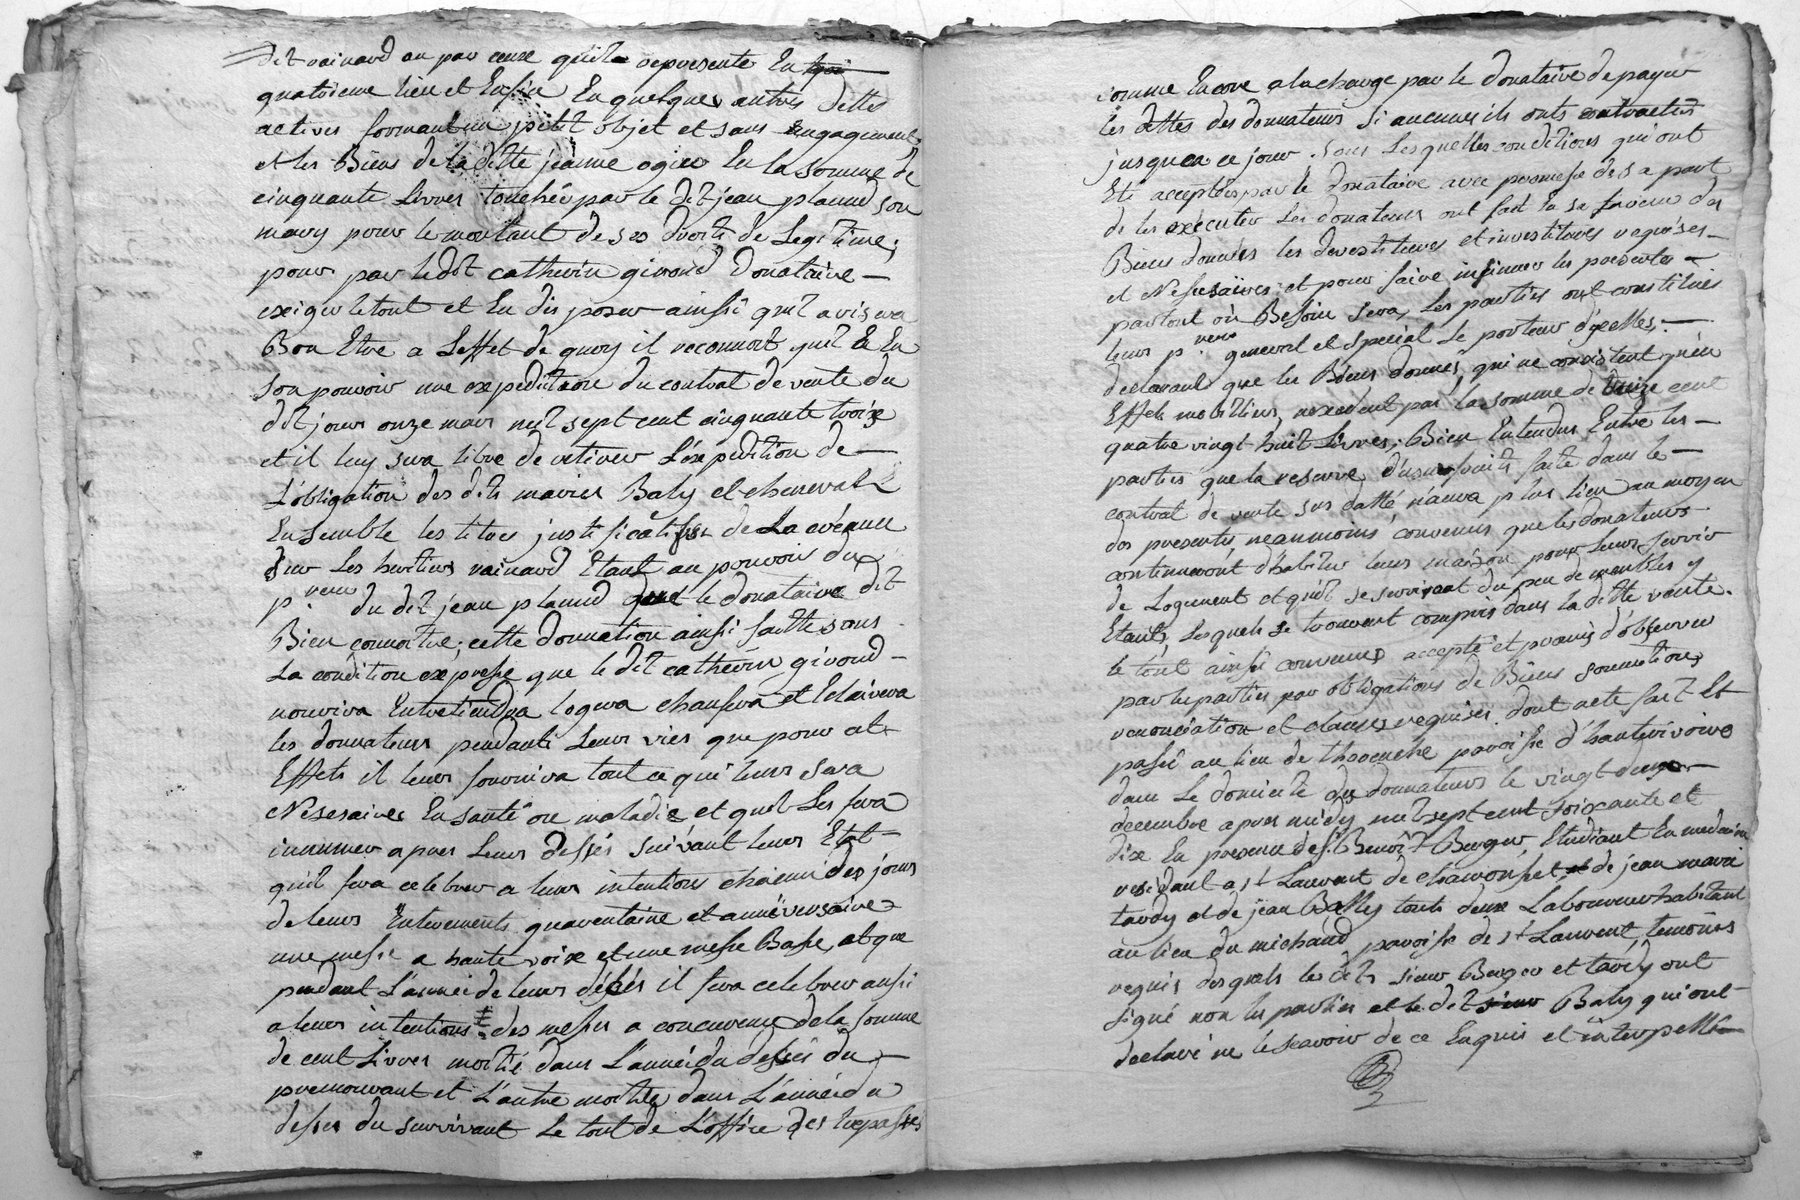 dit rainard ou par ceux quil represente En
quatrieme lieu et Enfin En quelques autres dettes
actives formant un petit objet et sans Engagement
et les Biens de la ditte jeanne ogier En la somme de
cinquante Livres touchée par le dit jean plannd son
mary pour le montant de ses droits de Legitime,
pour par ledit catherin girond donataire
exiger le tout et En disposer ainsi quil avisera
Bon Etre a Leffet de quoy il reconnoit quil a En
son pouvoir une expedition du contrat de vente du
dit jour onze mars mil sept cent cinquante troise
et il luy sera libre de retirer L'expedition de
L'obligation des dits mariés Baly et chenevat
Ensemble les titres justificatifs de La créance
sur Les heritiers rainard Etant au pouvoir du
pr vereur du dit jean plannd que le donataire dit
Bien connoitre, cette donnation ainsi faitte sous
La condition expresse que le dit cathérin girond
nourira Entretiendra logera chaufera et Eclairera
les donnateurs pendants Leurs vies que pour cet
Effets il leurs fournira tout ce qui leurs sera
Nesesaires En santé ou maladie et quil Les fera
inhumer apres Leurs dessés suivant leurs Etat
quil fera celebrer a leurs intentions chacuns des jours
de leurs Enterements quarentaine et anniversaire
une messe a haute voixe et une messe Basse, et que
pendant L'année de leurs déssés il fera celebrer aussi
a leurs intentions des messes a concurence de la somme
de cent Livres moitié dans L'année du dessés du
premourant et L'autre moitié dans L'année du
desses du survivant Le tout de L'office des trepassés
comme Encore a la charge par le donataire de payer
les dettes des donnateurs si aucunes ils onts contractés
jusqua ce jour. sous Lesquelles conditions qui ont
Eté acceptées par le donataire avec promesse de sa part
de les exécuter Les donateurs ont fait En sa faveur des
Biens donnés les devestitures et investitures requises
et Nesesaires et pour faire insinuer les presentes
partout ou Besoin sera, Les parties ont constitués
leurs pr vereur general et special Le porteur d'icelles,
declarant que les Biens donnés, qui ne consistent qu'en
Effets mobiliers, nexcedent pas la somme de treize cent
quatre vingt huit Livres; Bien Entendus Entre les
parties que la reserve d'usufruits faite dans le
contrat de vente sus datté n'aura plus lieu au moyen
des presentes neanmoins convenus que les donateurs
continueront d'habiter leurs maison pour Leurs servir
de Logement et quil se serviront du peu de meubles y
Etants, Lesquels se trouvent compris dans la ditte vente.
le tout ainsi convenus accepté et promis d'observer
par les parties par obligations de Biens soumitions
renonciation et clauses requises. dont acte fait Et
passé au lieu de thoranche paroisse d'hauterivoire
dans Le domicile des donnateurs le vingt deux
decembre apres midy mil sept cent soixante et
dixe En presence de sr. Benoit Berger, Etudiant En medecine
residant a st Laurant de chamousset et de jean marie
tardy et de jean Bally touts deux Laboureur habitant
au lieu du michaud paroisse de st Laurent, temoins
requis desquels les dits sieur Berger et tardy ont
signé non les parties et le dit Baly qui ont
declaré ne le scavoir de ce Enquis et interpellé